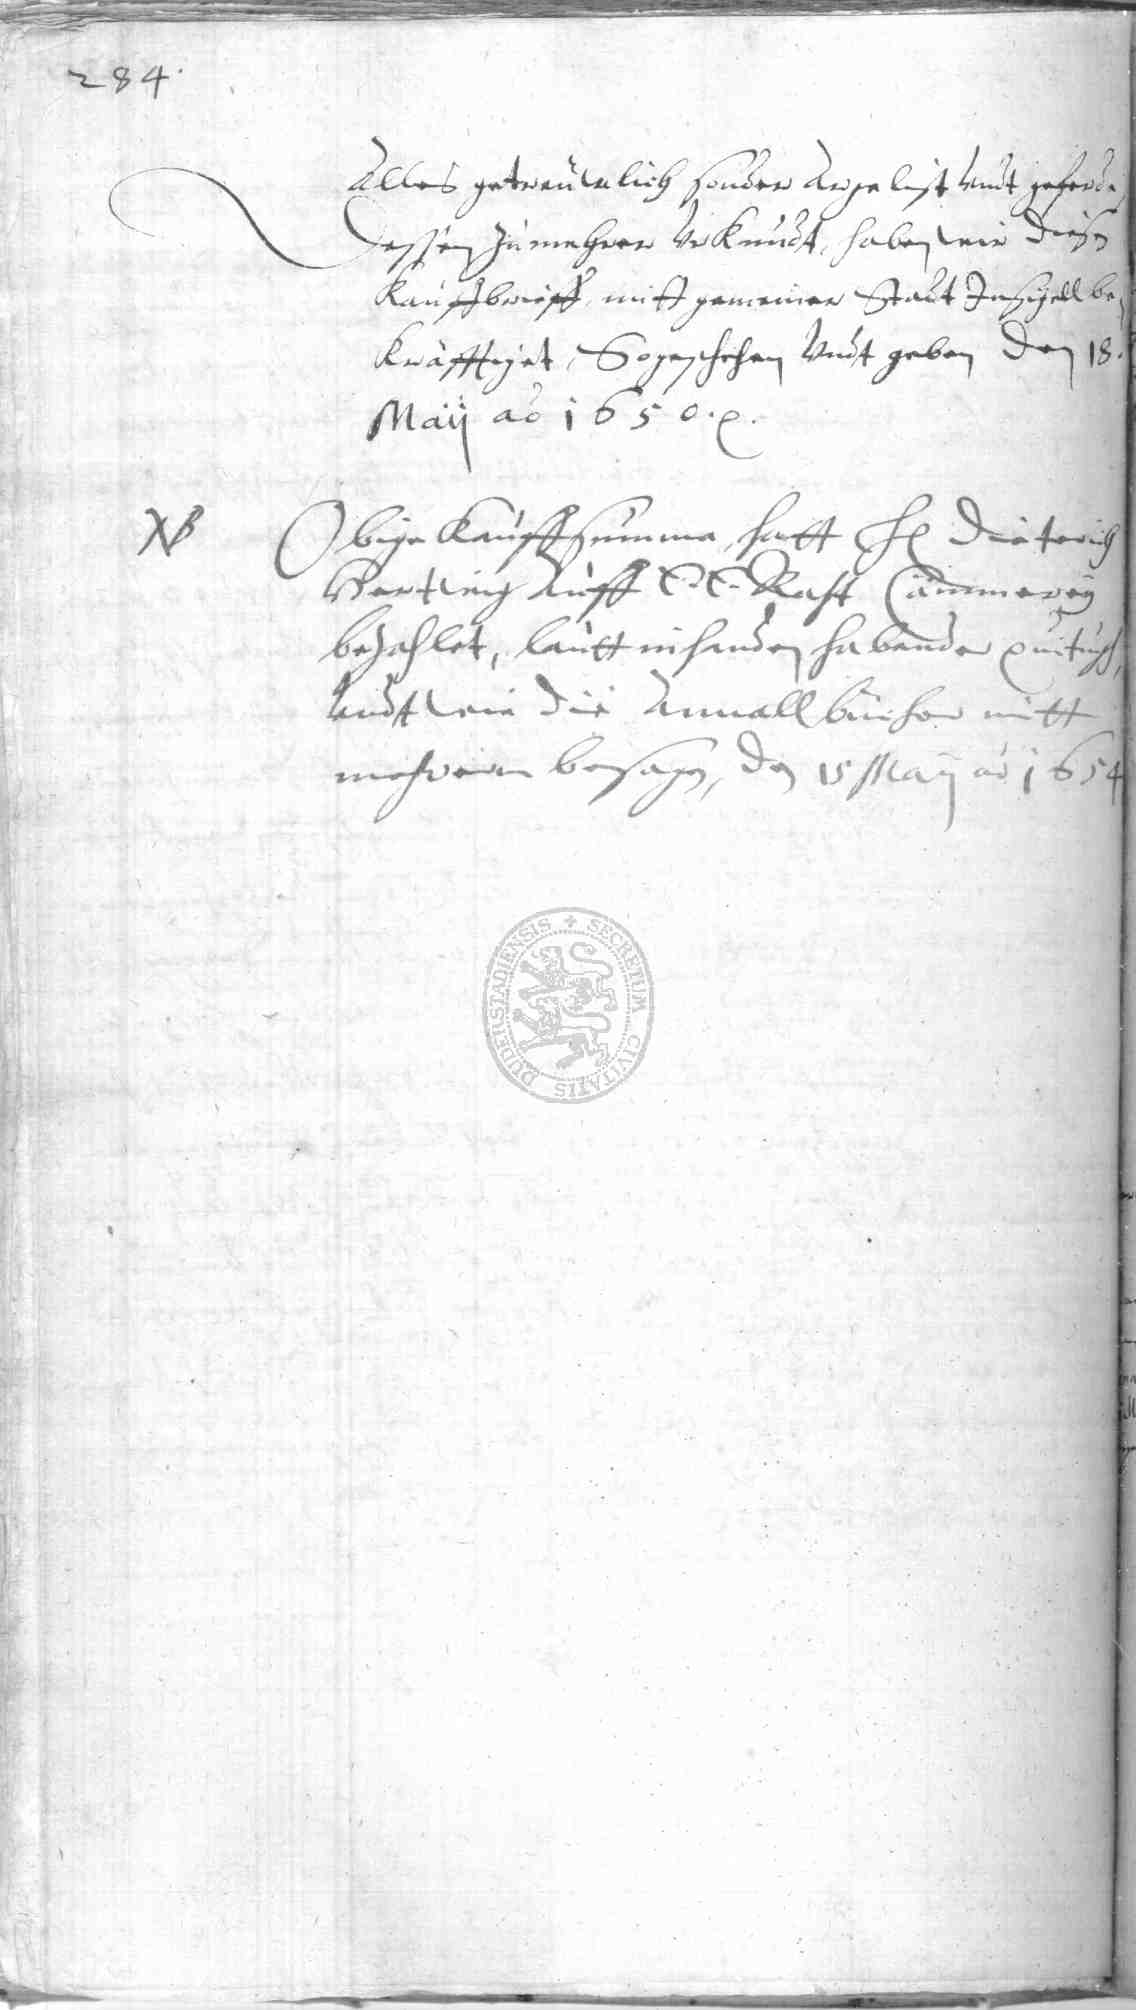 284.
Alles getreuwlich sonder Argelist Undt geferde,
Dessen zu mehrer Urkundt, haben wir diesen
Kauffbrieff, mitt gemeiner Stadt Insigell be-
kräfftiget, So geschehen Undt geben den 18.
Maÿ ao 1650.
NB Obige Kauffsumma, hatt H Dieterich
Hertwig Auff E. E. Raht Cämmereÿ
bezahlet, lautt in handen habender quitung,
Undt wie die Annall bücher mitt
mehrern besagen, den 15 Maÿ ao 1654
DUDERSTADIENSIS + SECRETUM CIVITATIS